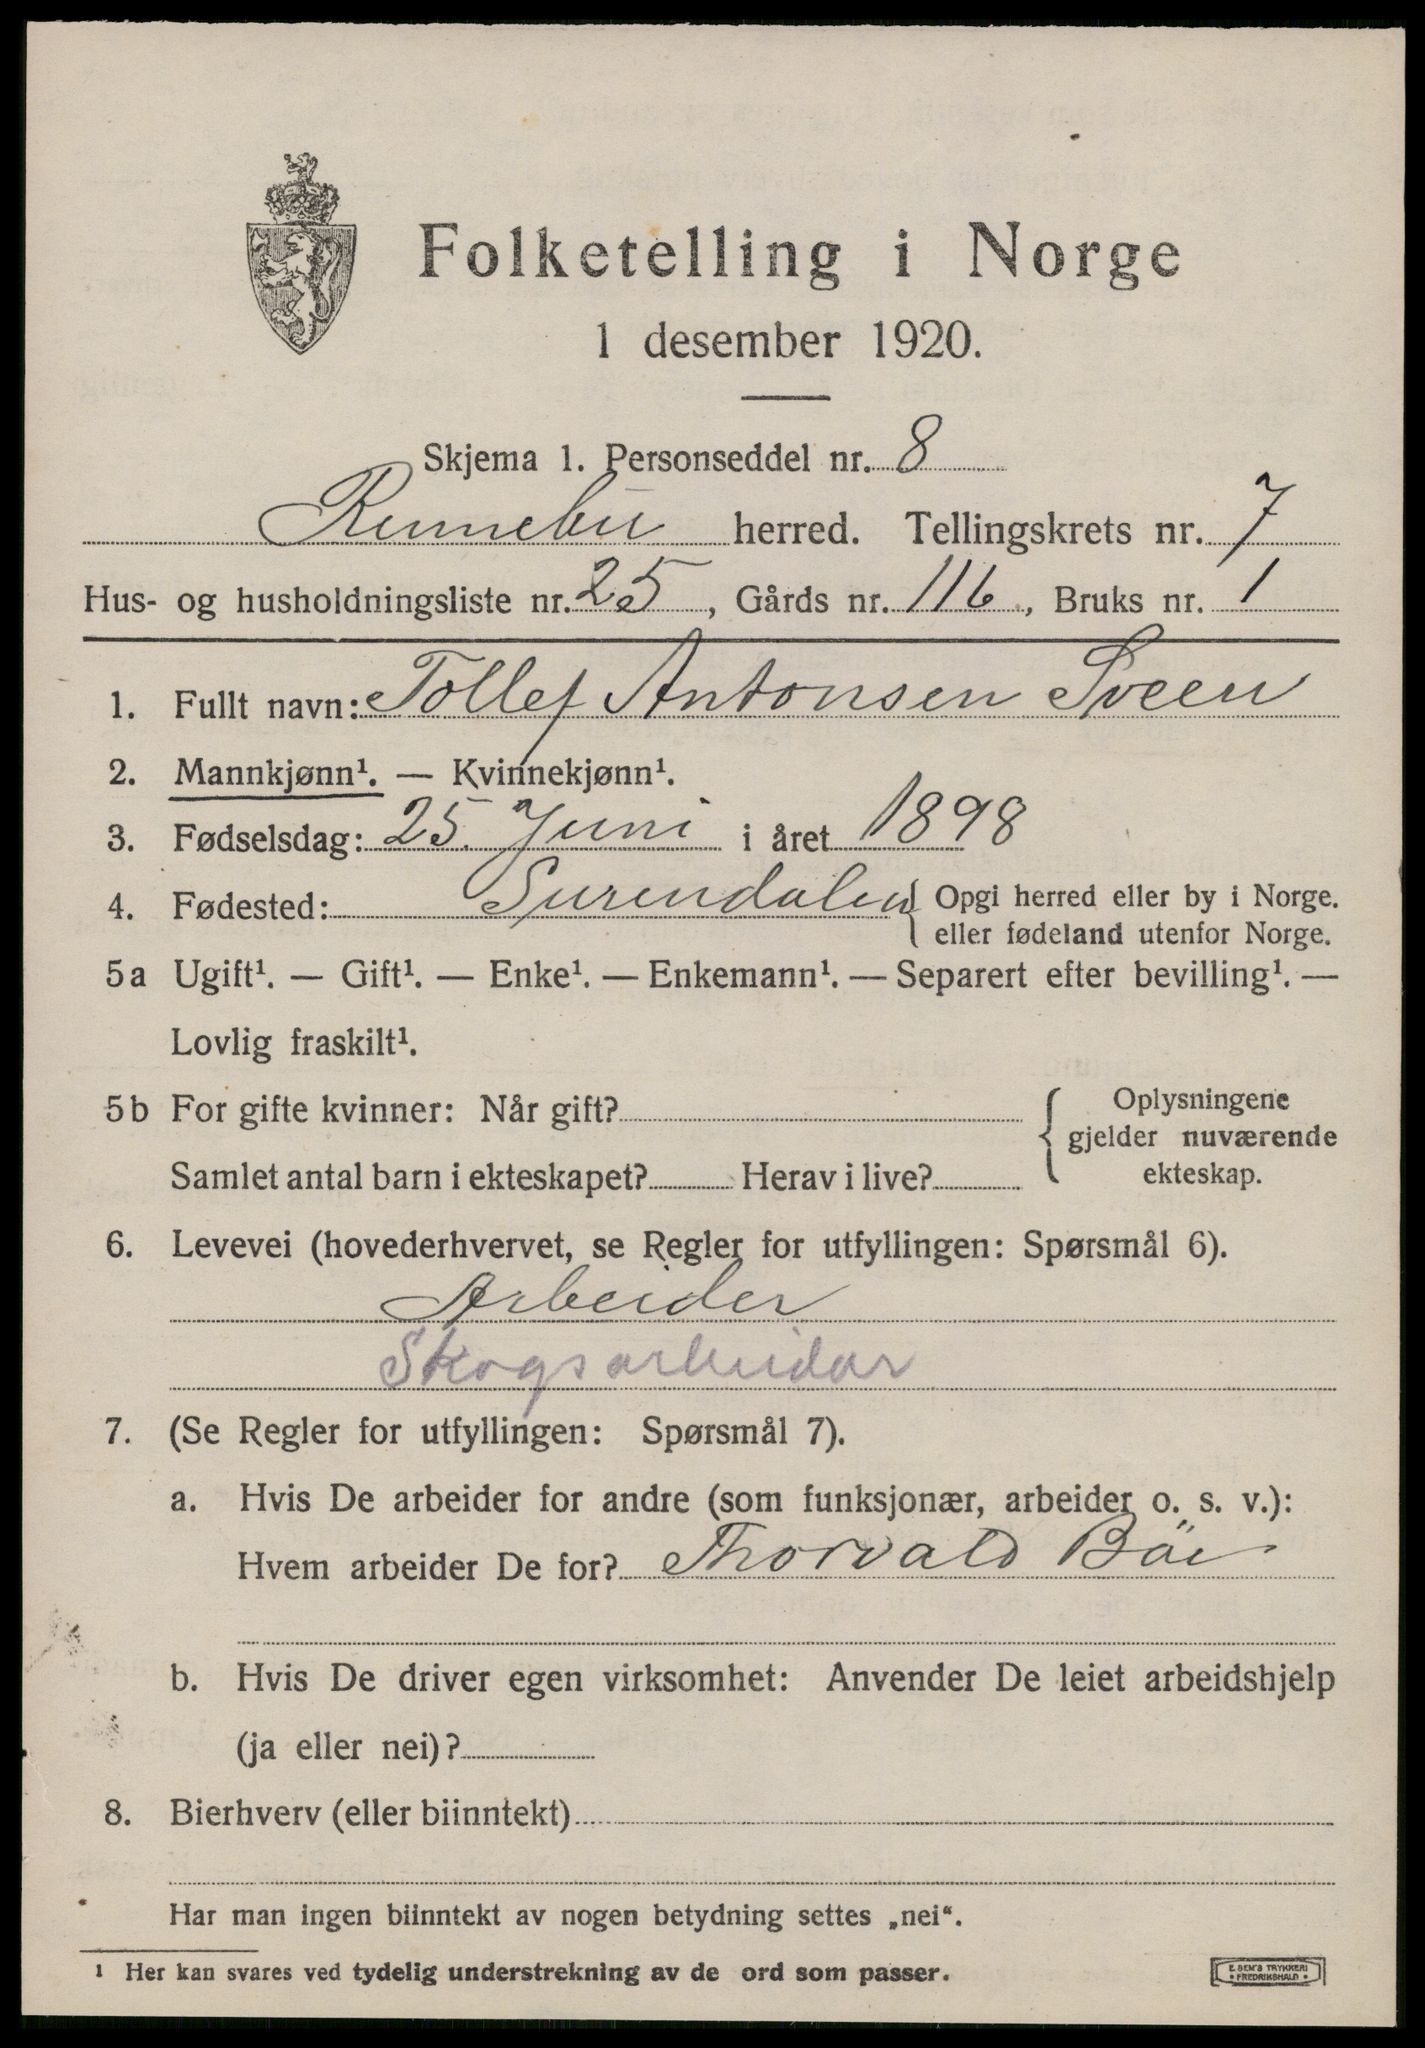 Folketelling i Norge
1 desember 1920.
Skjema 1. Personseddel nr. 8
Rennebu herred. Tellingskrets nr. 7
Hus- og husholdningsliste nr. 25, Gårds nr. 116, Bruks nr. 1
1. Fullt navn: Tollef Antonsen Sveen
2. Mannkjønn¹. — Kvinnekjønn¹.
3. Fødselsdag: 25. Juni i året 1898
4. Fødested: Surendalen { Opgi herred eller by i Norge.
eller fødeland utenfor Norge.
5a Ugift¹. — Gift¹. — Enke¹. — Enkemann¹. — Separert efter bevilling¹. —
Lovlig fraskilt¹.
5b For gifte kvinner: Når gift? { Oplysningene
gjelder nuværende
Samlet antal barn i ekteskapet? Herav i live? ekteskap.
6. Levevei (hovederhvervet, se Regler for utfyllingen: Spørsmål 6).
Arbeider
Skogsarbeidar
7. (Se Regler for utfyllingen: Spørsmål 7).
a. Hvis De arbeider for andre (som funksjonær, arbeider o. s. v.):
Hvem arbeider De for? Thorvald Böe
b. Hvis De driver egen virksomhet: Anvender De leiet arbeidshjelp
(ja eller nei)?
8. Bierhverv (eller biinntekt)
Har man ingen biinntekt av nogen betydning settes „nei“.
¹ Her kan svares ved tydelig understrekning av de ord som passer.
E. SEM'S TRYKKERI
• FREDRIKSHALD •